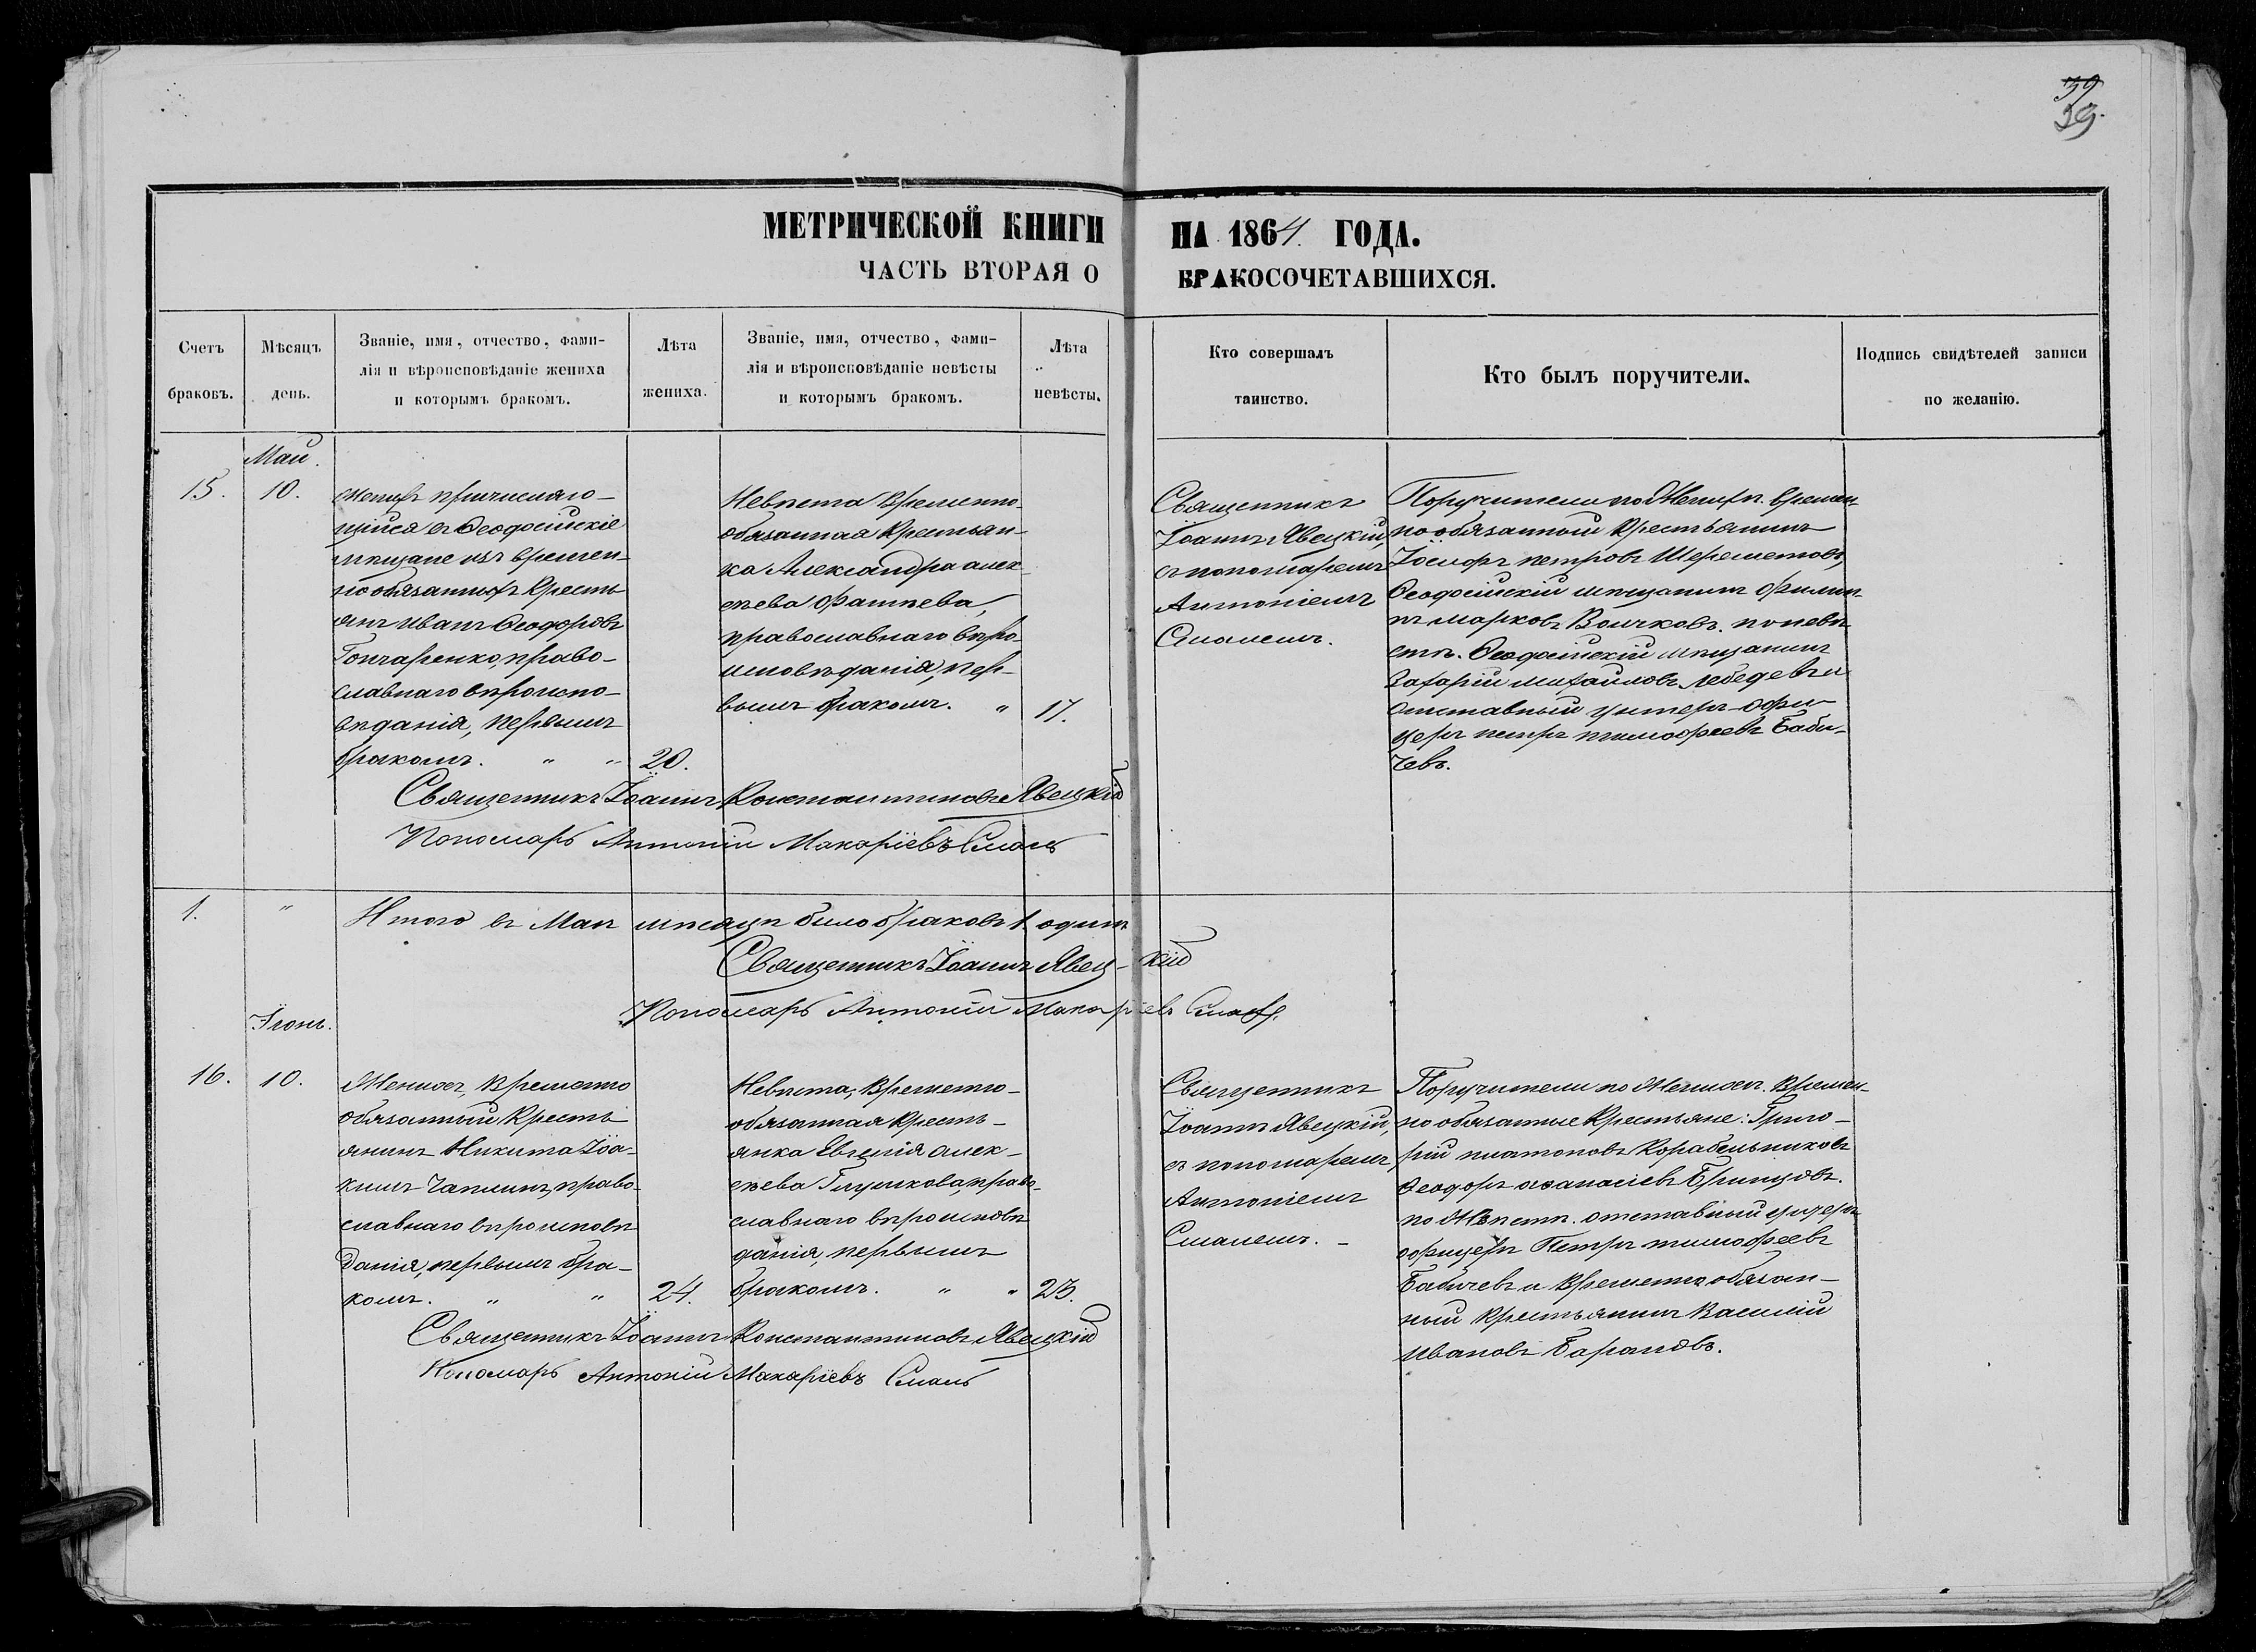 39
39.
МЕТРИЧЕСКОЙ КНИГИ НА 1864. ГОДА.
ЧАСТЬ ВТОРАЯ О БРАКОСОЧЕТАВШИХСЯ.
Счетъ
браковъ.
Мѣсяцъ
день.
Званіе, имя, отчество, фами-
лія и вѣроисповѣданіе жениха
и которымъ бракомъ.
Лѣта
жениха.
Званіе, имя, отчество, фами-
лія и вѣроисповѣданіе невѣсты
и которымъ бракомъ.
Лѣта
невѣсты.
Кто совершалъ
таинство.
Кто былъ поручители.
Подпись свидѣтелей записи
по желанію.
Май.
15.
10.
женихъ причисляю-
щійся въ Ѳеодосійскіе
мѣщане изъ времен-
но обязанныхъ Кресть
янъ Иванъ Ѳеодоровъ
Гончаренко, право-
славнаго вѣроиспо-
вѣданія, первымъ
бракомъ. " "
20.
Невѣста Временно-
обязанная Крестьян-
ка Александра алек-
сѣева Фатѣева,
православнаго вѣро-
исповѣданія, пер-
вымъ бракомъ. "
17.
Священникъ
Іоаннъ Явецкій,
съ пономаремъ
Антоніемъ
Смалемъ.
Поручители по Женихѣ. времен-
но обязанный Крестьянинъ
Іосифъ петровъ Шереметовъ,
Ѳеодосійскій мѣщанинъ Филип-
пъ марковъ Волчковъ. по невѣ-
стѣ. Ѳеодосійскій мѣщанинъ
Захарій михайловъ Лебедевъ и
отставный унтеръ-офи-
церъ петръ тимофеевъ Баби-
чевъ.
Священникъ Іоаннъ Константиновъ Явецкій
Пономарь Антоній Макаріевъ Смаль
1.
"
Итого въ Маѣ мѣсяцѣ было браковъ 1 одинъ
Священникъ Іоаннъ Явец-кій
Пономарь Антоній Макаріевъ Смаль
Іюнь.
16.
10.
Женихъ, Временно
обязанный Кресть
янинъ Никита Іоа-
кимъ Чаплинъ, право-
славнаго вѣроисповѣ
данія, первымъ бра-
комъ. " "
24.
Невѣста, Временно-
обязанная Кресть-
янка Евгенія алек-
сѣева Глушкова, право-
славнаго вѣроисповѣ
данія, первымъ
бракомъ. " "
23.
Священникъ
Іоаннъ Явецкій,
съ пономаремъ
Антоніемъ
Смалемъ. -
Поручители по Женихѣ. Времен-
но обязанные Крестьяне: Григо-
рій платоновъ Корабельниковъ
Ѳеодоръ аѳанасіевъ Бринцовъ.
по Невѣстѣ. отставный унтеръ
офицеръ Петръ тимофеевъ
Бабичевъ и Временно обязан-
ный Крестьянинъ Василій
Ивановъ Барановъ.
Священникъ Іоаннъ Константиновъ Явецкій
Пономарь Антоній Макаріевъ Смаль